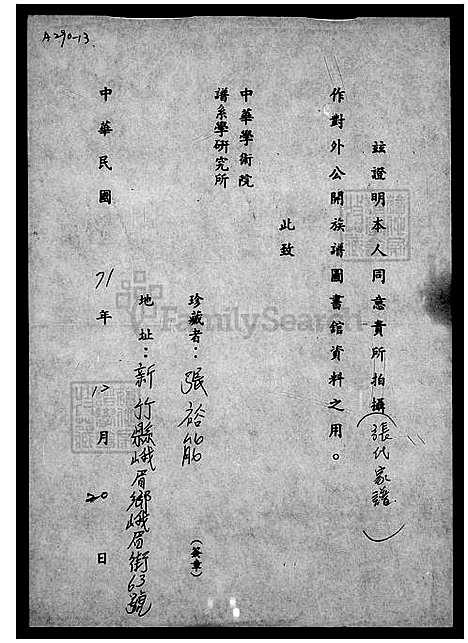 A290-13
茲證明本人同意貴所拍攝(張氏家譜)
作對外公開族譜圖書館資料之用。
此致
中華學術院
譜系學研究所
珍藏者：張裕
(簽章)
地址：新竹縣峨眉鄉峨眉街63號
中華民國71年12月20日
FamilySearch